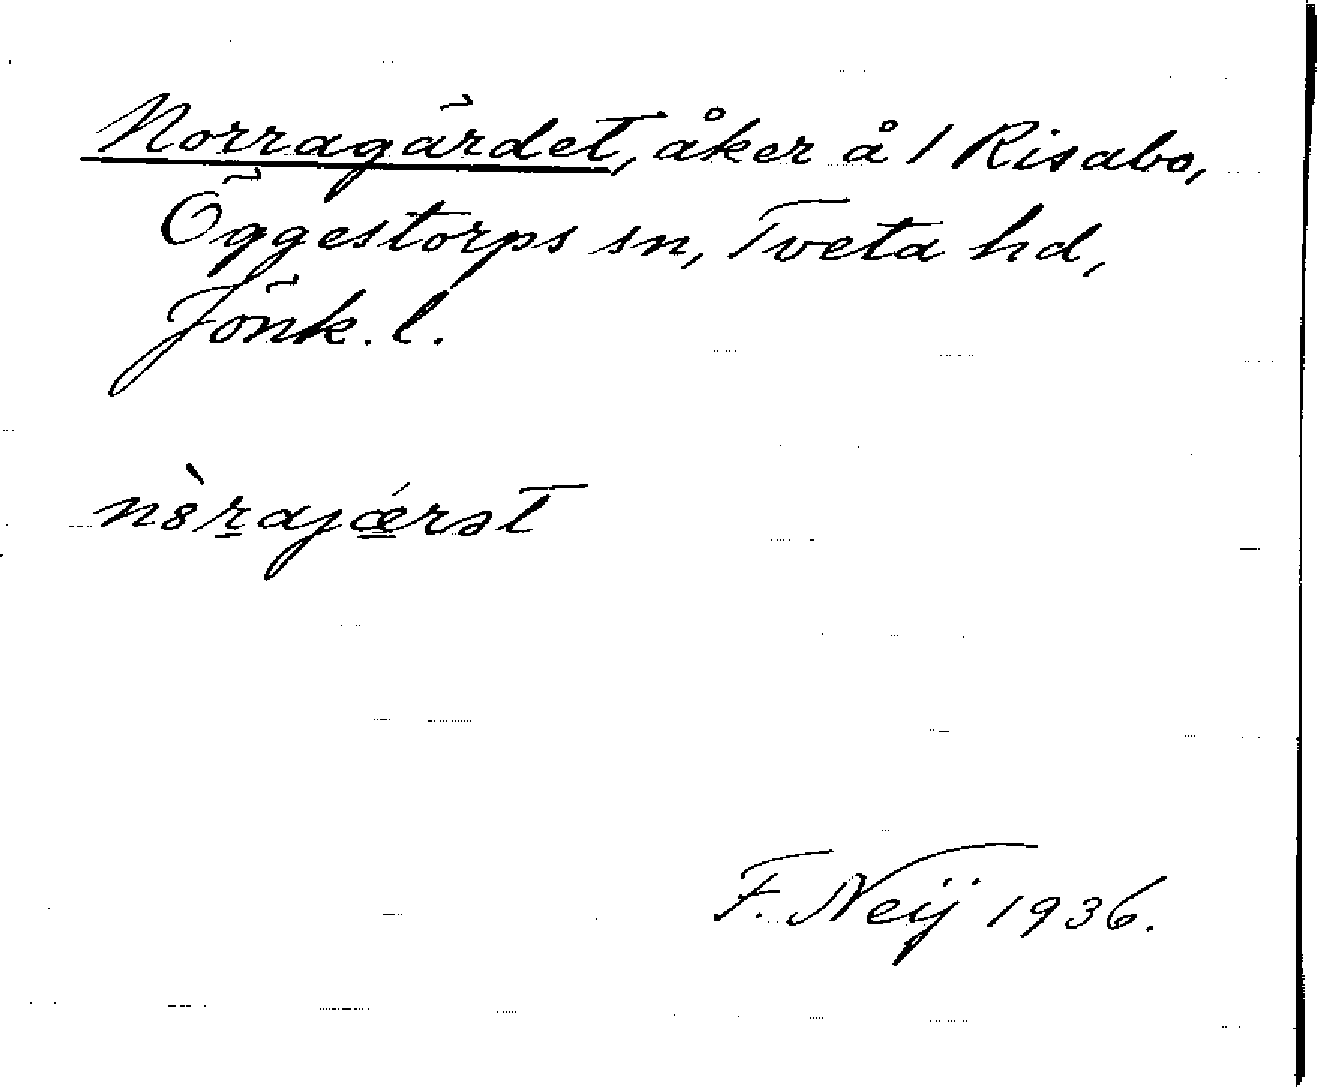 Norragärdet, åker å 1 Risabo,
Öggestorps sn, Tveta hd,
Jönk. l.
nòrajǽrət
F. Neij 1936.